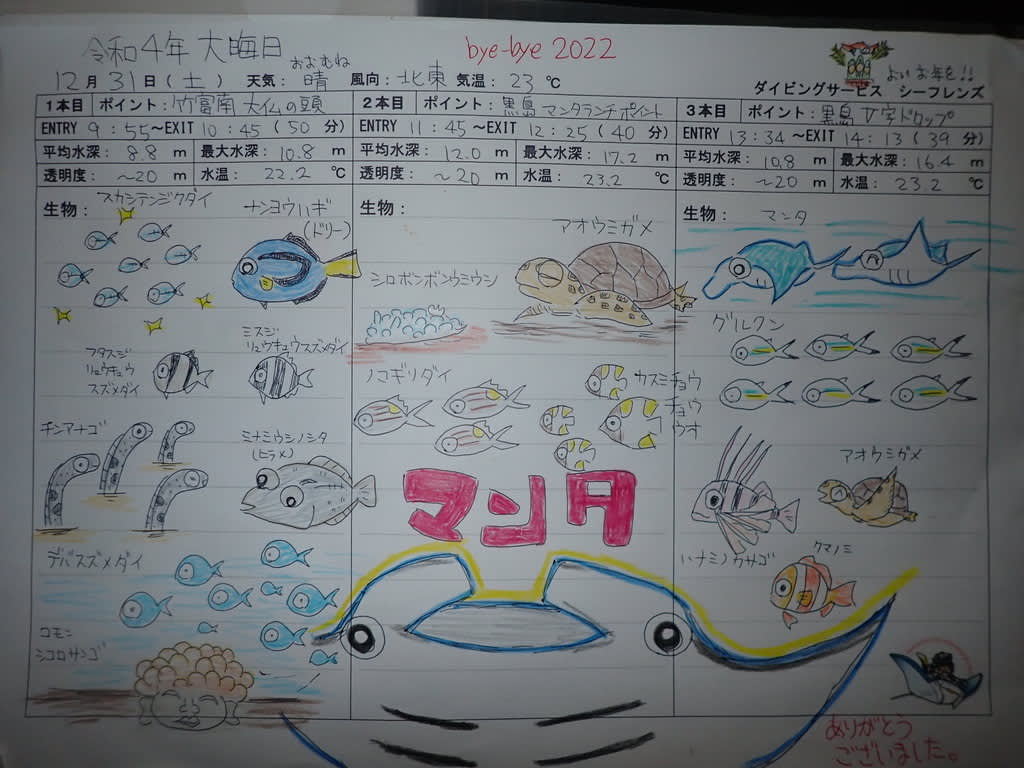 令和4年 大晦日 bye-bye 2022
おおむね
よいお年を!!
12月31日(土) 天気: 晴 風向: 北東 気温: 23℃ ダイビングサービス シーフレンズ
1本目 ポイント: 竹富南 大仏の頭
ENTRY 9:55~EXIT 10:45(50分)
平均水深: 8.8 m 最大水深: 10.8 m
透明度: ~20 m 水温: 22.2 ℃
生物:
スカシテンジクダイ
ナンヨウハギ
(ドリー)
フタスジ
リュウキュウ
スズメダイ
ミスジ
リュウキュウスズメダイ
チンアナゴ
ミナミウシノシタ
(ヒラメ)
デバスズメダイ
コモン
シコロサンゴ
2本目 ポイント: 黒島 マンタランチポイント
ENTRY 11:45~EXIT 12:25(40分)
平均水深: 12.0 m 最大水深: 17.2 m
透明度: ~20 m 水温: 23.2 ℃
生物:
アオウミガメ
シロボンボンウミウシ
ノコギリダイ
カスミチョウ
チョウ
ウオ
マンタ
3本目 ポイント: 黒島 V字ドロップ
ENTRY 13:34~EXIT 14:13(39分)
平均水深: 10.8 m 最大水深: 16.4 m
透明度: ~20 m 水温: 23.2 ℃
生物:
マンタ
グルクン
アオウミガメ
ハナミノカサゴ
クマノミ
ありがとう
ございました。